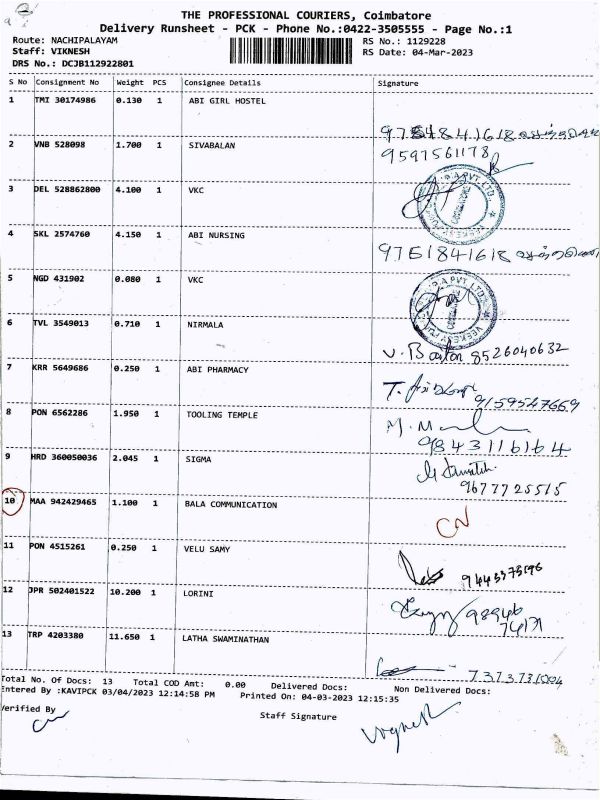 THE PROFESSIONAL COURIERS, Coimbatore
Delivery Runsheet - PCK - Phone No.:0422-3505555 - Page No.:1
Route: NACHIPALAYAM RS No.: 1129228
Staff: VIKNESH RS Date: 04-Mar-2023
DRS No.: DCJB112922801
S No Consignment No Weight PCS Consignee Details Signature
1 TMI 30174986 0.130 1 ABI GIRL HOSTEL
2 VNB 528098 1.700 1 SIVABALAN
9597561178
3 DEL 528862800 4.100 1 VKC
4 SKL 2574760 4.150 1 ABI NURSING
9751841618
5 NGD 431902 0.080 1 VKC
6 TVL 3549013 0.710 1 NIRMALA
8526040632
7 KRR 5649686 0.250 1 ABI PHARMACY
9159547669
8 PON 6562286 1.950 1 TOOLING TEMPLE
9843116164
9 HRD 360050036 2.045 1 SIGMA
9677725515
10 MAA 942429465 1.100 1 BALA COMMUNICATION
CN
11 PON 4515261 0.250 1 VELU SAMY
12 JPR 502401522 10.200 1 LORINI
13 TRP 4203380 11.650 1 LATHA SWAMINATHAN
Total No. Of Docs: 13 Total COD Amt: 0.00 Delivered Docs: Non Delivered Docs:
Entered By :KAVIPCK 03/04/2023 12:14:58 PM Printed On: 04-03-2023 12:15:35
Verified By
Staff Signature